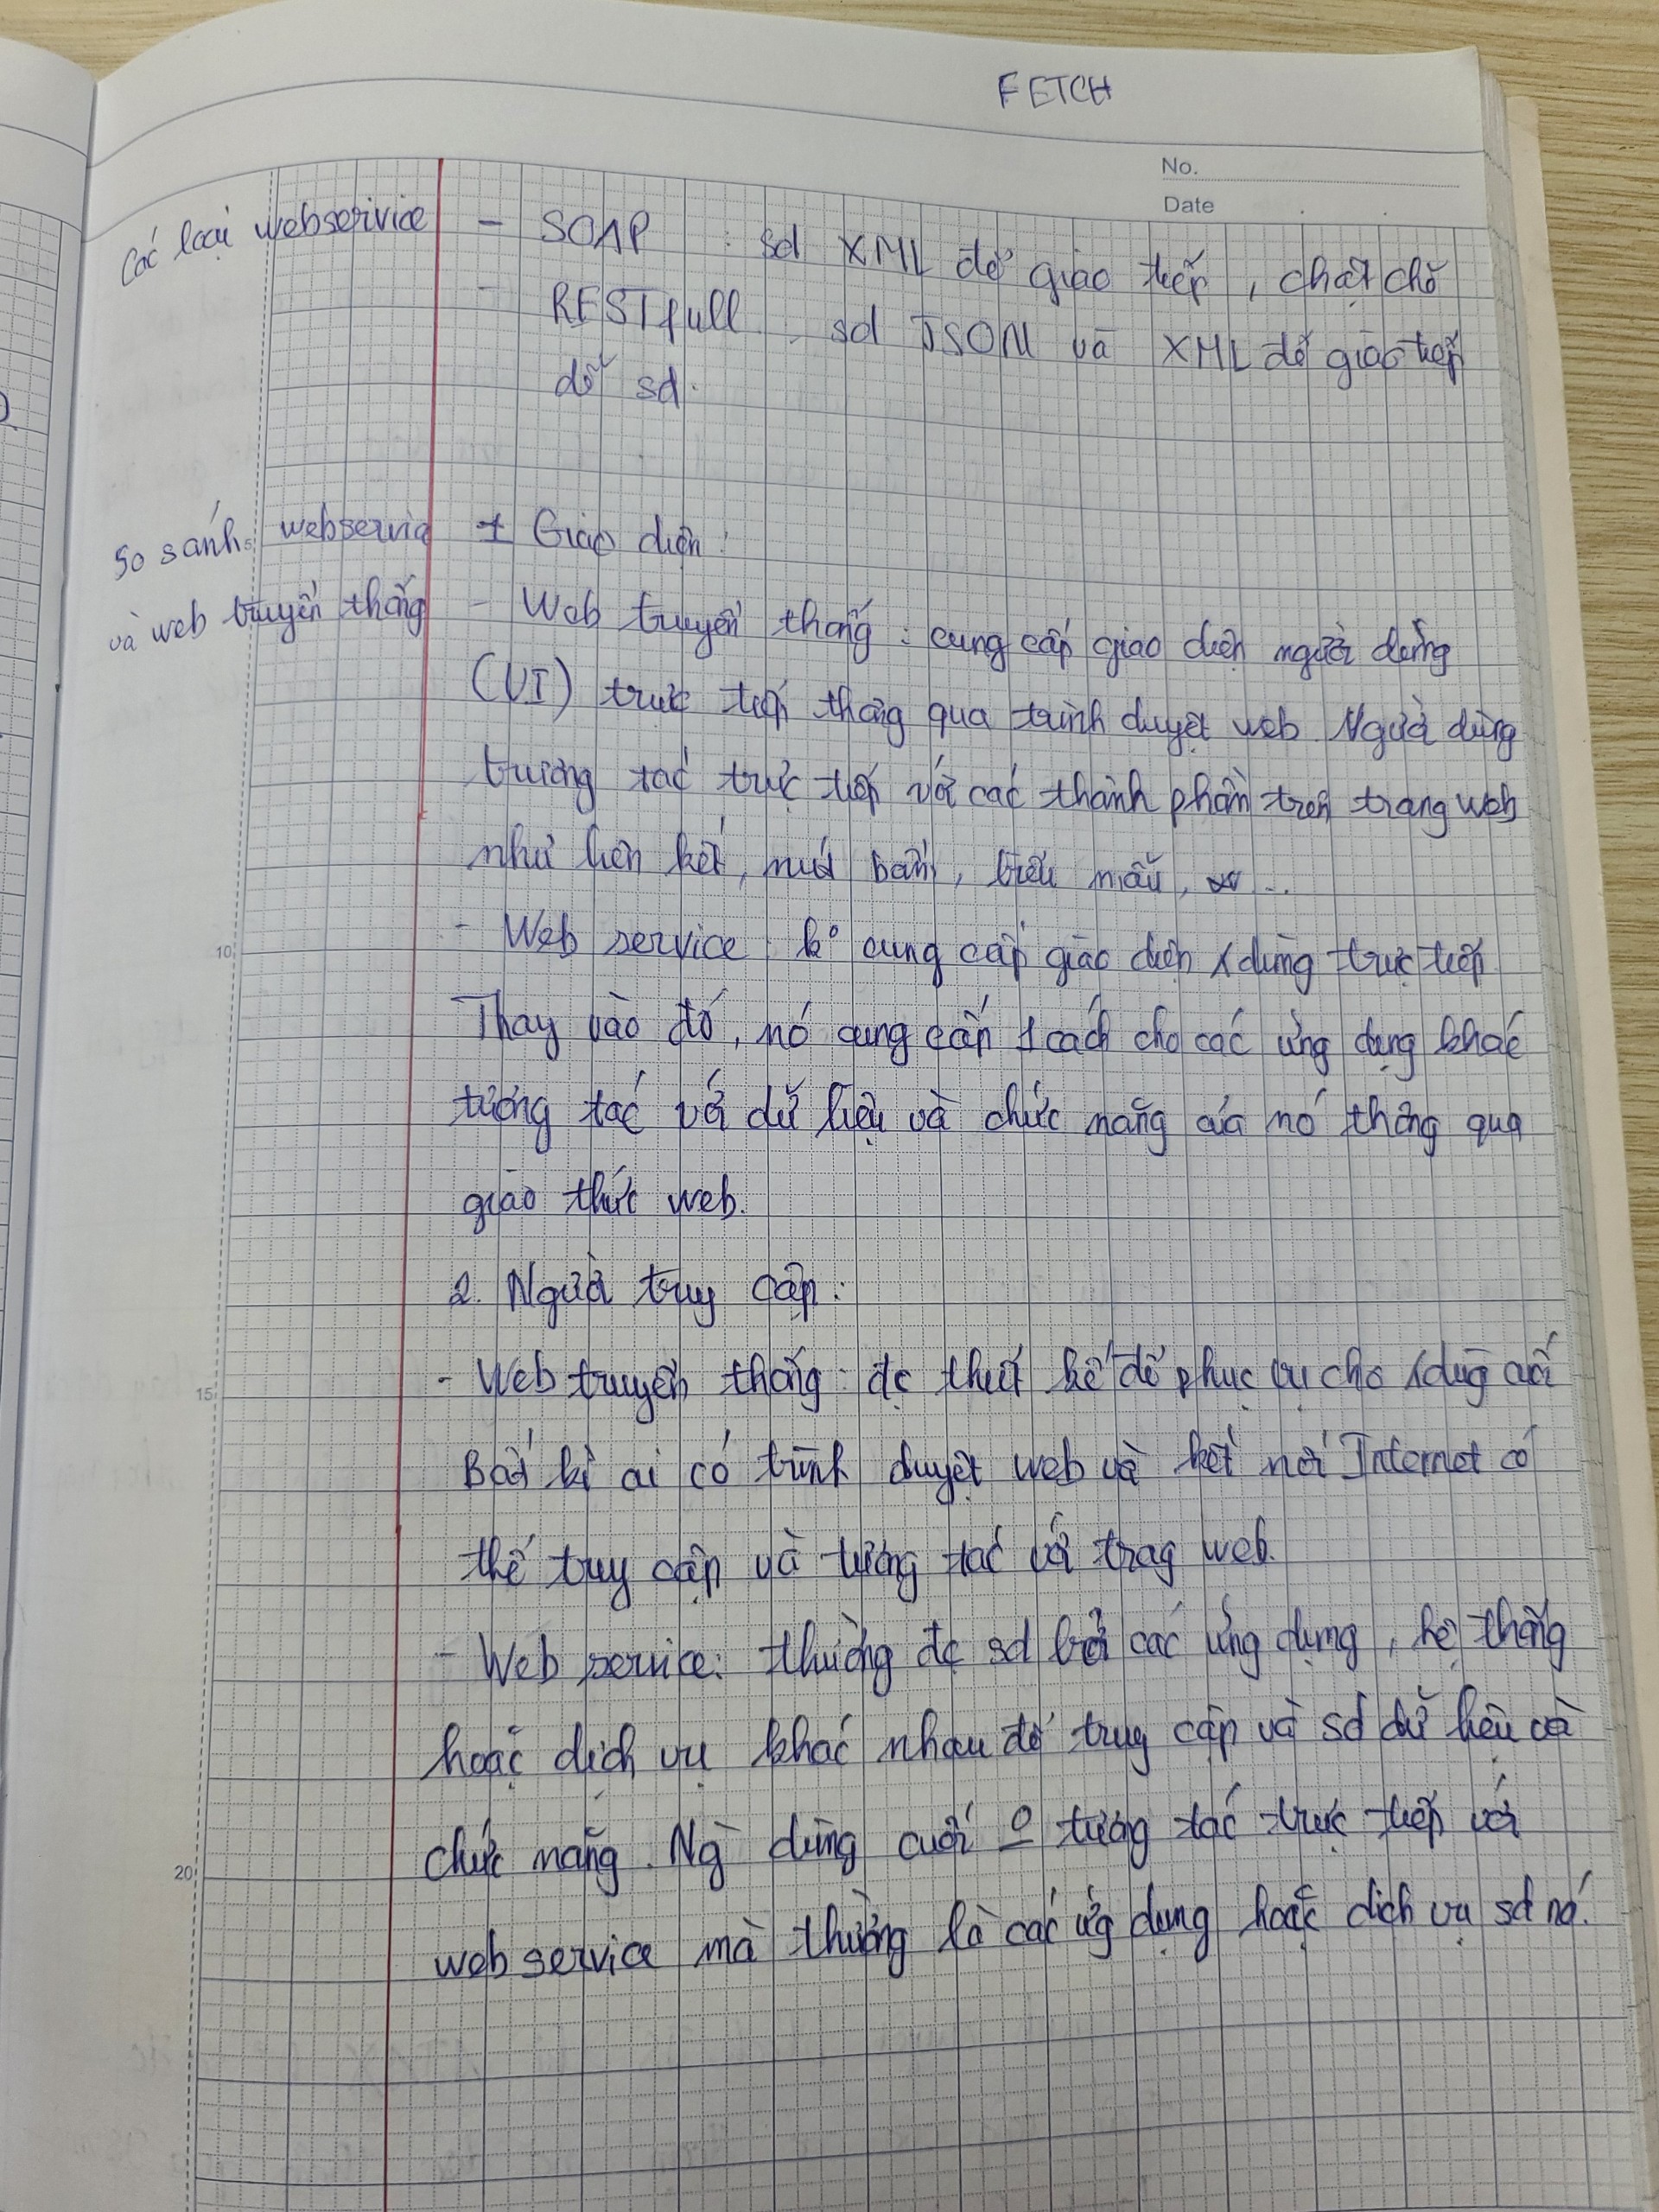 FETCH
No.
Date
Các loại webserivice - SOAP : sd XML để giao tiếp, chặt chẽ
- RESTfull : sd JSON và XML để giao tiếp
dễ sd.
So sánh webservice + Giao diện:
và web truyền thống - Web truyền thống : cung cấp giao diện người dùng
(UI) trực tiếp thông qua trình duyệt web. Người dùng
trương tác trực tiếp với các thành phần trên trang web
như liên kết, nút bấm, biểu mẫu, ...
- Web service : ko cung cấp giao diện dùng trực tiếp
10
Thay vào đó, nó cung cấp 1 cách cho các ứng dụng khác
tương tác với dữ liệu và chức năng của nó thông qua
giao thức web.
2. Người truy cập :
- Web truyền thống : đc thiết kế để phục vụ cho dùg cuối
15
Bất kì ai có trình duyệt web và kết nối Internet có
thể truy cập và tương tác với trag web.
- Web service: thường đc sd bởi các ứng dụng, hệ thống
hoặc dịch vụ khác nhau để truy cập và sd dữ liệu và
chức năng. Ng dùng cuối tương tác trực tiếp với
20
web service mà thường là các ứg dụng hoặc dịch vụ sd nó.